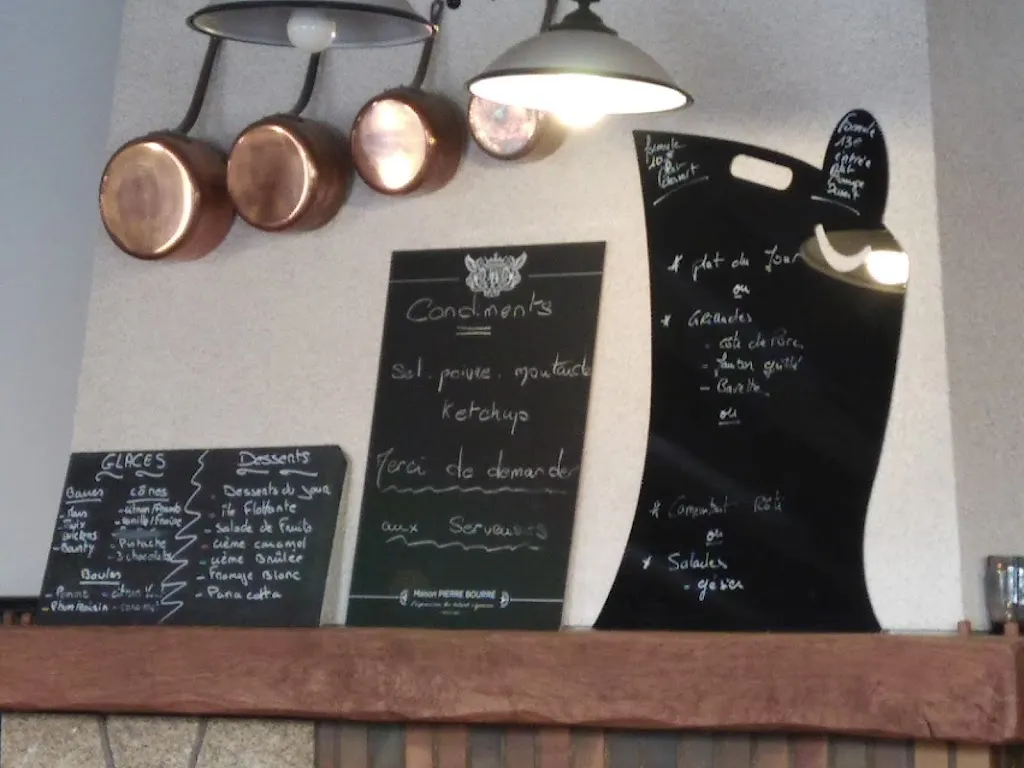 GLACES
Barres cônes
Mars
Twix
Bounty
- vanille/fraise
- Pistache
- 3 chocolats
Boules
- Rhum Raisin
Desserts
- Desserts du Jour
- île Flottante
- Salade de Fruits
- crème caramel
- crème Brûlée
- Fromage Blanc
- Pana cotta
Condiments
Sel. poivre. moutarde
Ketchup
Merci de demander
aux Serveuses
Maison PIERRE BOURRÉ
Formule
10€
Plat
Dessert
Formule
13€
entrée
Plat
Dessert
* plat du Jour
ou
* Grillades
- côte de Porc
- Jambon grillé
- Bavette
ou
* Camembert Rôti
ou
* Salades
- gésier